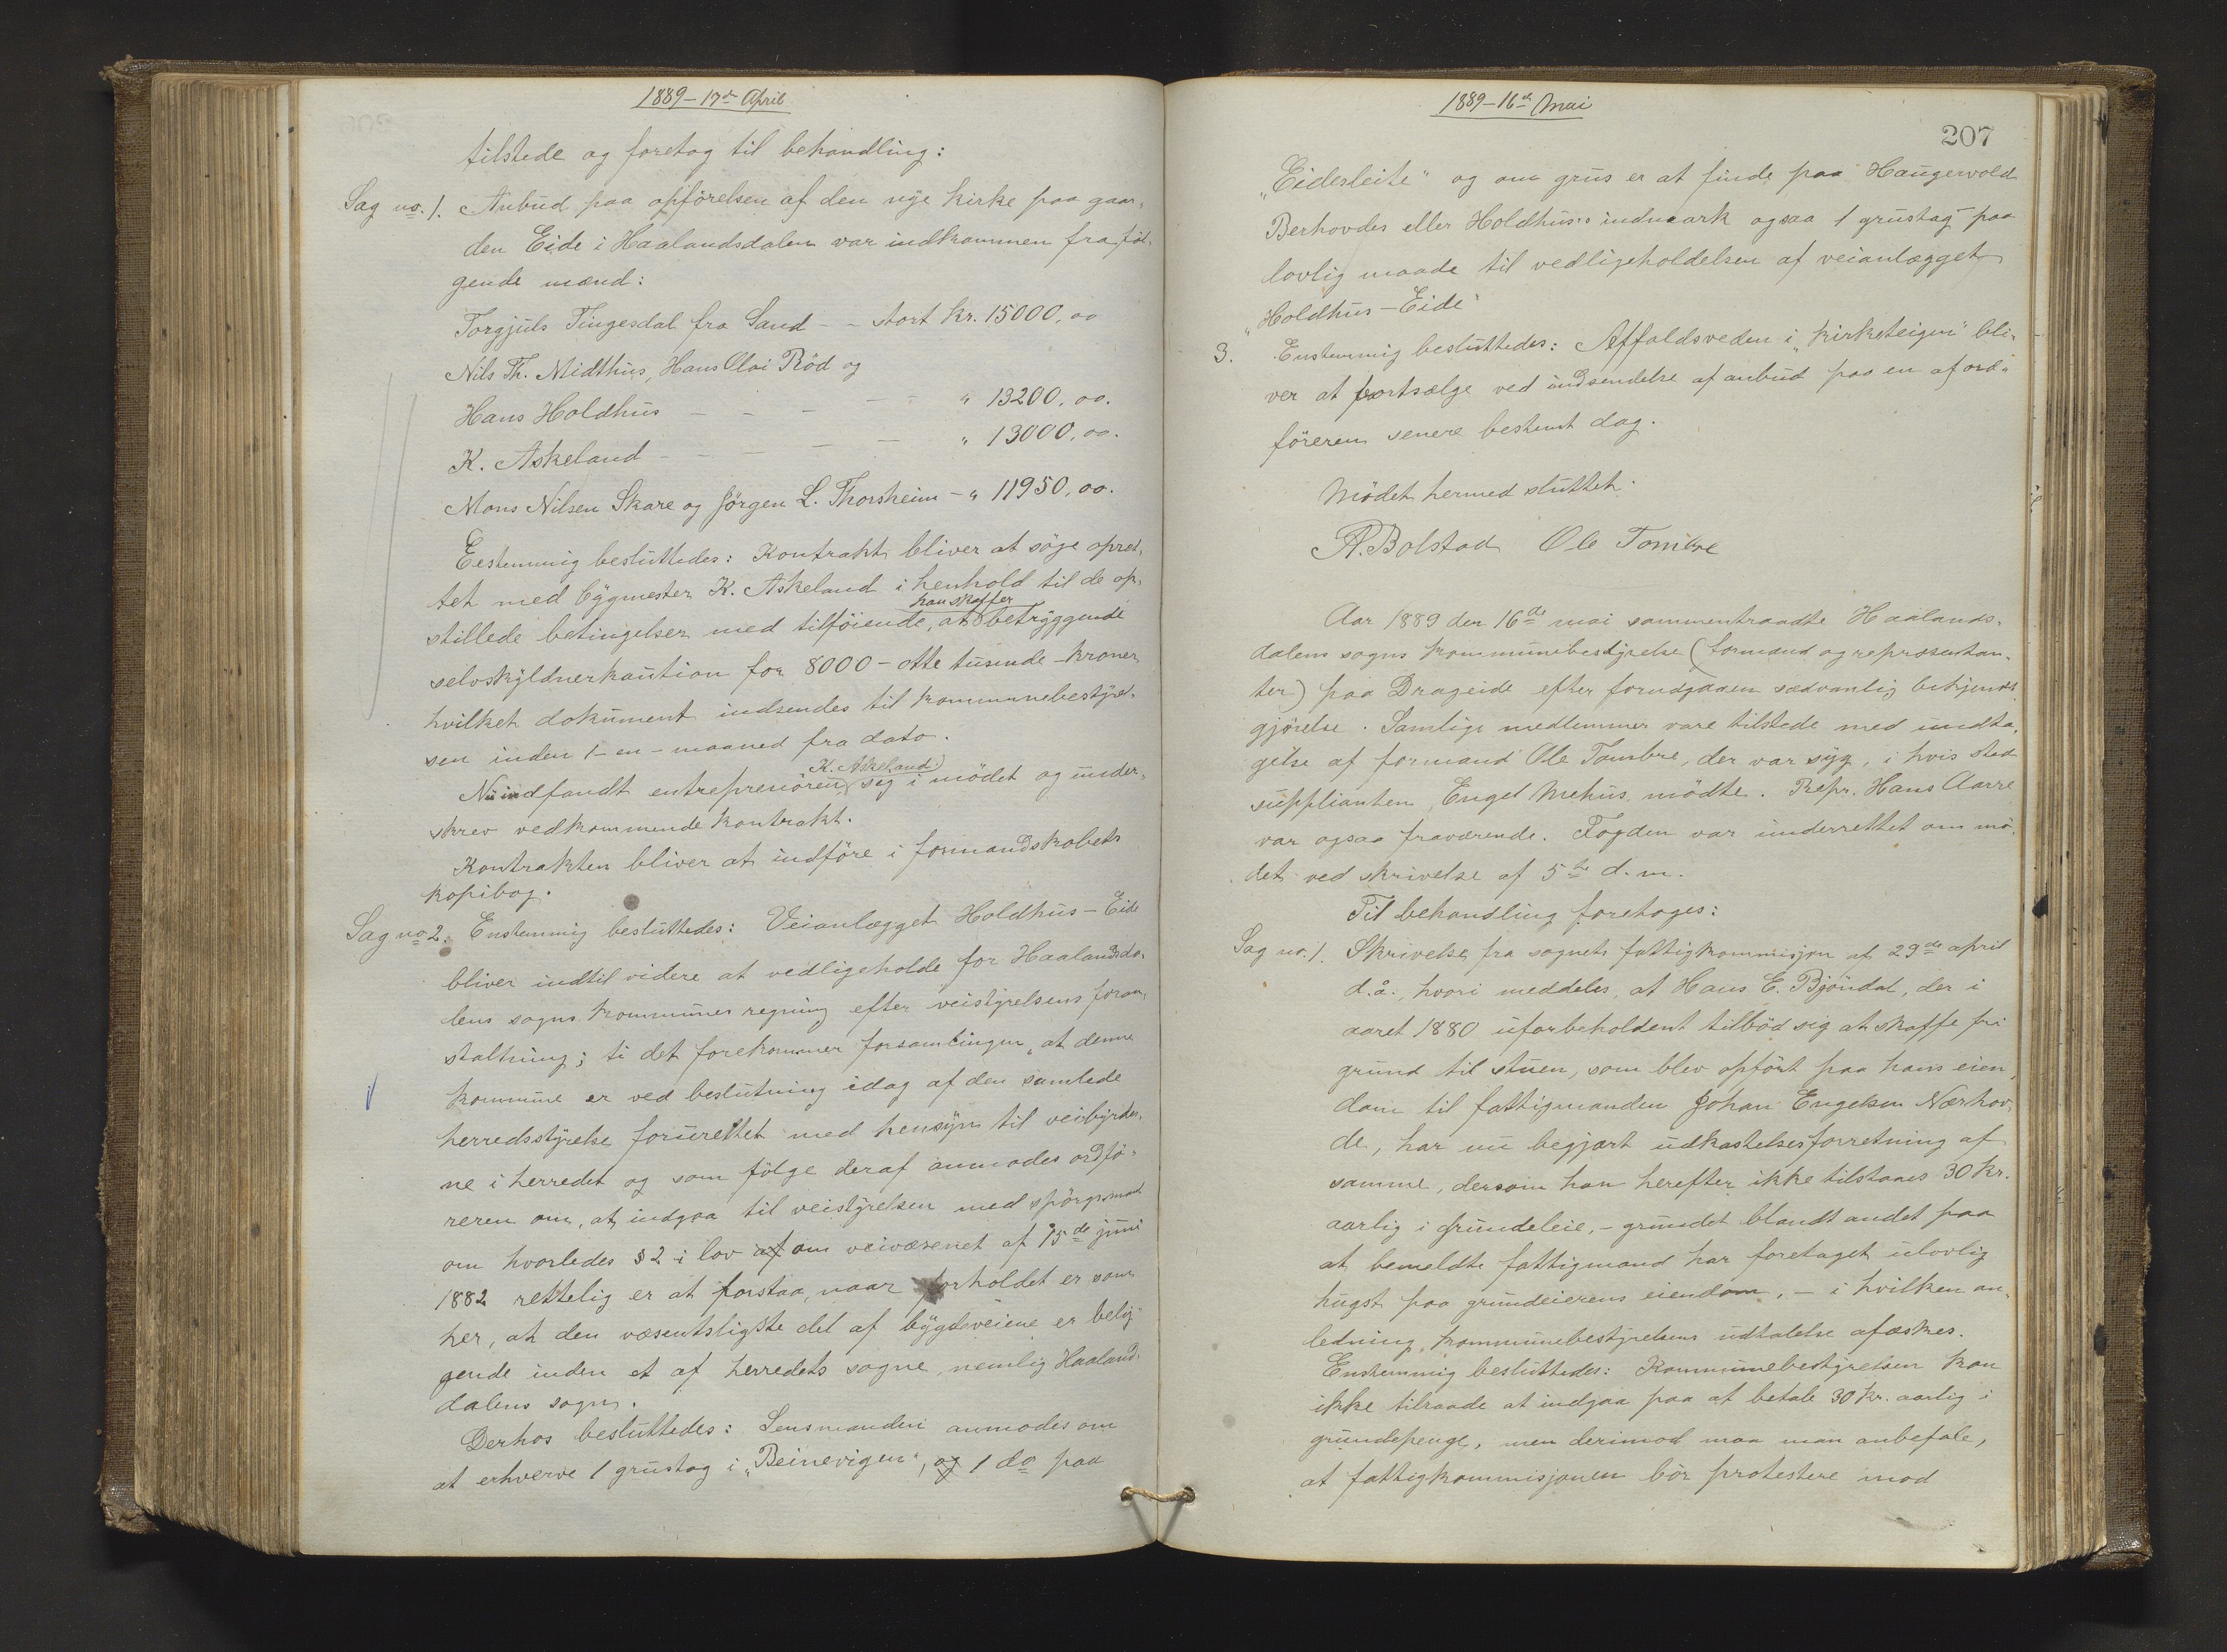 1889 - 17de April
tilstede og foretog til behandling:
Sag no. 1. Anbud paa opförelsen af den nye kirke paa gaar-
den Eide i Haalandsdalen var indkommen fra föl-
gende mænd:
Torgjuls Tingesdal fra Sand - - stort kr. 15000,00
Nils Th. Midthus, Hans Olai Röd og
Hans Holdhus - - - - - " 13200,00.
K. Askeland - - - - - " 13000,00.
Mons Nilsen Skare og Jörgen L. Thorsheim - " 11950,00.
Eestemmig besluttedes: Kontrakt bliver at söge opret-
tet med bygmester K. Askeland i henhold til de op-
han skaffer
stillede betingelser med tilföiende, at betryggende
selvskyldnerkaution for 8000 - otte tusinde - kroner
hvilket dokument indsendes til kommunebestyrel-
sen inden 1 - en - maaned fra dato.
K. Askeland
Nu indfandt entreprenören sig i mödet og under-
skrev vedkommende kontrakt.
Kontrakten bliver at indföre i formandskabets
kopibog.
Sag no 2. Enstemmig besluttedes: Veianlægget Holdhus - Eide
bliver indtil videre at vedligeholde for Haalandsda-
lens sogns kommunes regning efter veistyrelsens foran-
staltning; ti det forekommer forsamlingen, at denne
kommune er ved beslutning idag af den samlede
herredsstyrelse forurettet med hensyn til veibyrder-
ne i herredet og som fölge deraf anmodes ordfö-
reren om, at indgaa til veistyrelsen med spörgsmaal
om hvorledes § 2 i lov af om veivæsenet af 15de juni
1882 rettelig er at forstaa, naar forholdet er som
her, at den væsentsligste del af bygdeveiene er belig-
gende inden et af herredets sogne, nemlig Haalands-
dalens sogn.
Derhos besluttedes: Lensmanden anmodes om
at erhverve 1 grustag i "Beinevigen", og 1 do paa
1889 - 16de Mai
207
"Eidesleite" og om grus er at finde paa Haugervold
Berhovdes eller Holdhus's indmark ogsaa 1 grustag paa
lovlig maade til vedligeholdelsen af veianlægget
"Holdhus - Eide"
3. Enstemmig besluttedes: Affaldsveden i "Kirketeigen" bli-
ver at bortsælge ved indsendelse af anbud paa en af ord-
föreren senere bestemt dag.
Mödet hermed sluttet.
A. Bolstad Ole Tombre
Aar 1889 den 16de mai sammentraadte Haalands-
dalens sogns kommunebestyrelse (formænd og repræsentan-
ter) paa Drageide efter forudgaaen sædvanlig bekjendt-
gjörelse. Samtlige medlemmer vare tilstede med undta-
gelse af formand Ole Tombre, der var syg, i hvis sted
supplianten, Engel Mehus, mödte. Repr. Hans Aarre
var ogsaa fraværende. Fogden var underrettet om mö-
det ved skrivelse af 5te d. m.
Til behandling foretoges:
Sag no. 1. Skrivelse fra sognets fattigkommisjon af 29de april
d. å., hvori meddeles, at Hans E. Bjöndal, der i
aaret 1880 uforbeholdent tilböd sig at skaffe fri
grund til stuen, som blev opfört paa hans eien-
dom til fattigmanden Johan Engelsen Nærhov-
de, har nu begjært udkastelsesforretning af
samme, dersom han herefter ikke tilstaaes 30 kr.
aarlig i grundeleie, - grundet blandt andet paa
at bemeldte fattigmand har foretaget ulovlig
hugst paa grundeierens eiendom, - i hvilken an-
ledning kommunebestyrelsens udtalelse afæskes.
Enstemmig besluttedes: Kommunebestyrelsen kan
ikke tilraade at indgaa paa at betale 30 kr. aarlig i
grundepenge, men derimod maa man anbefale,
at fattigkommisjonen bör protestere mod